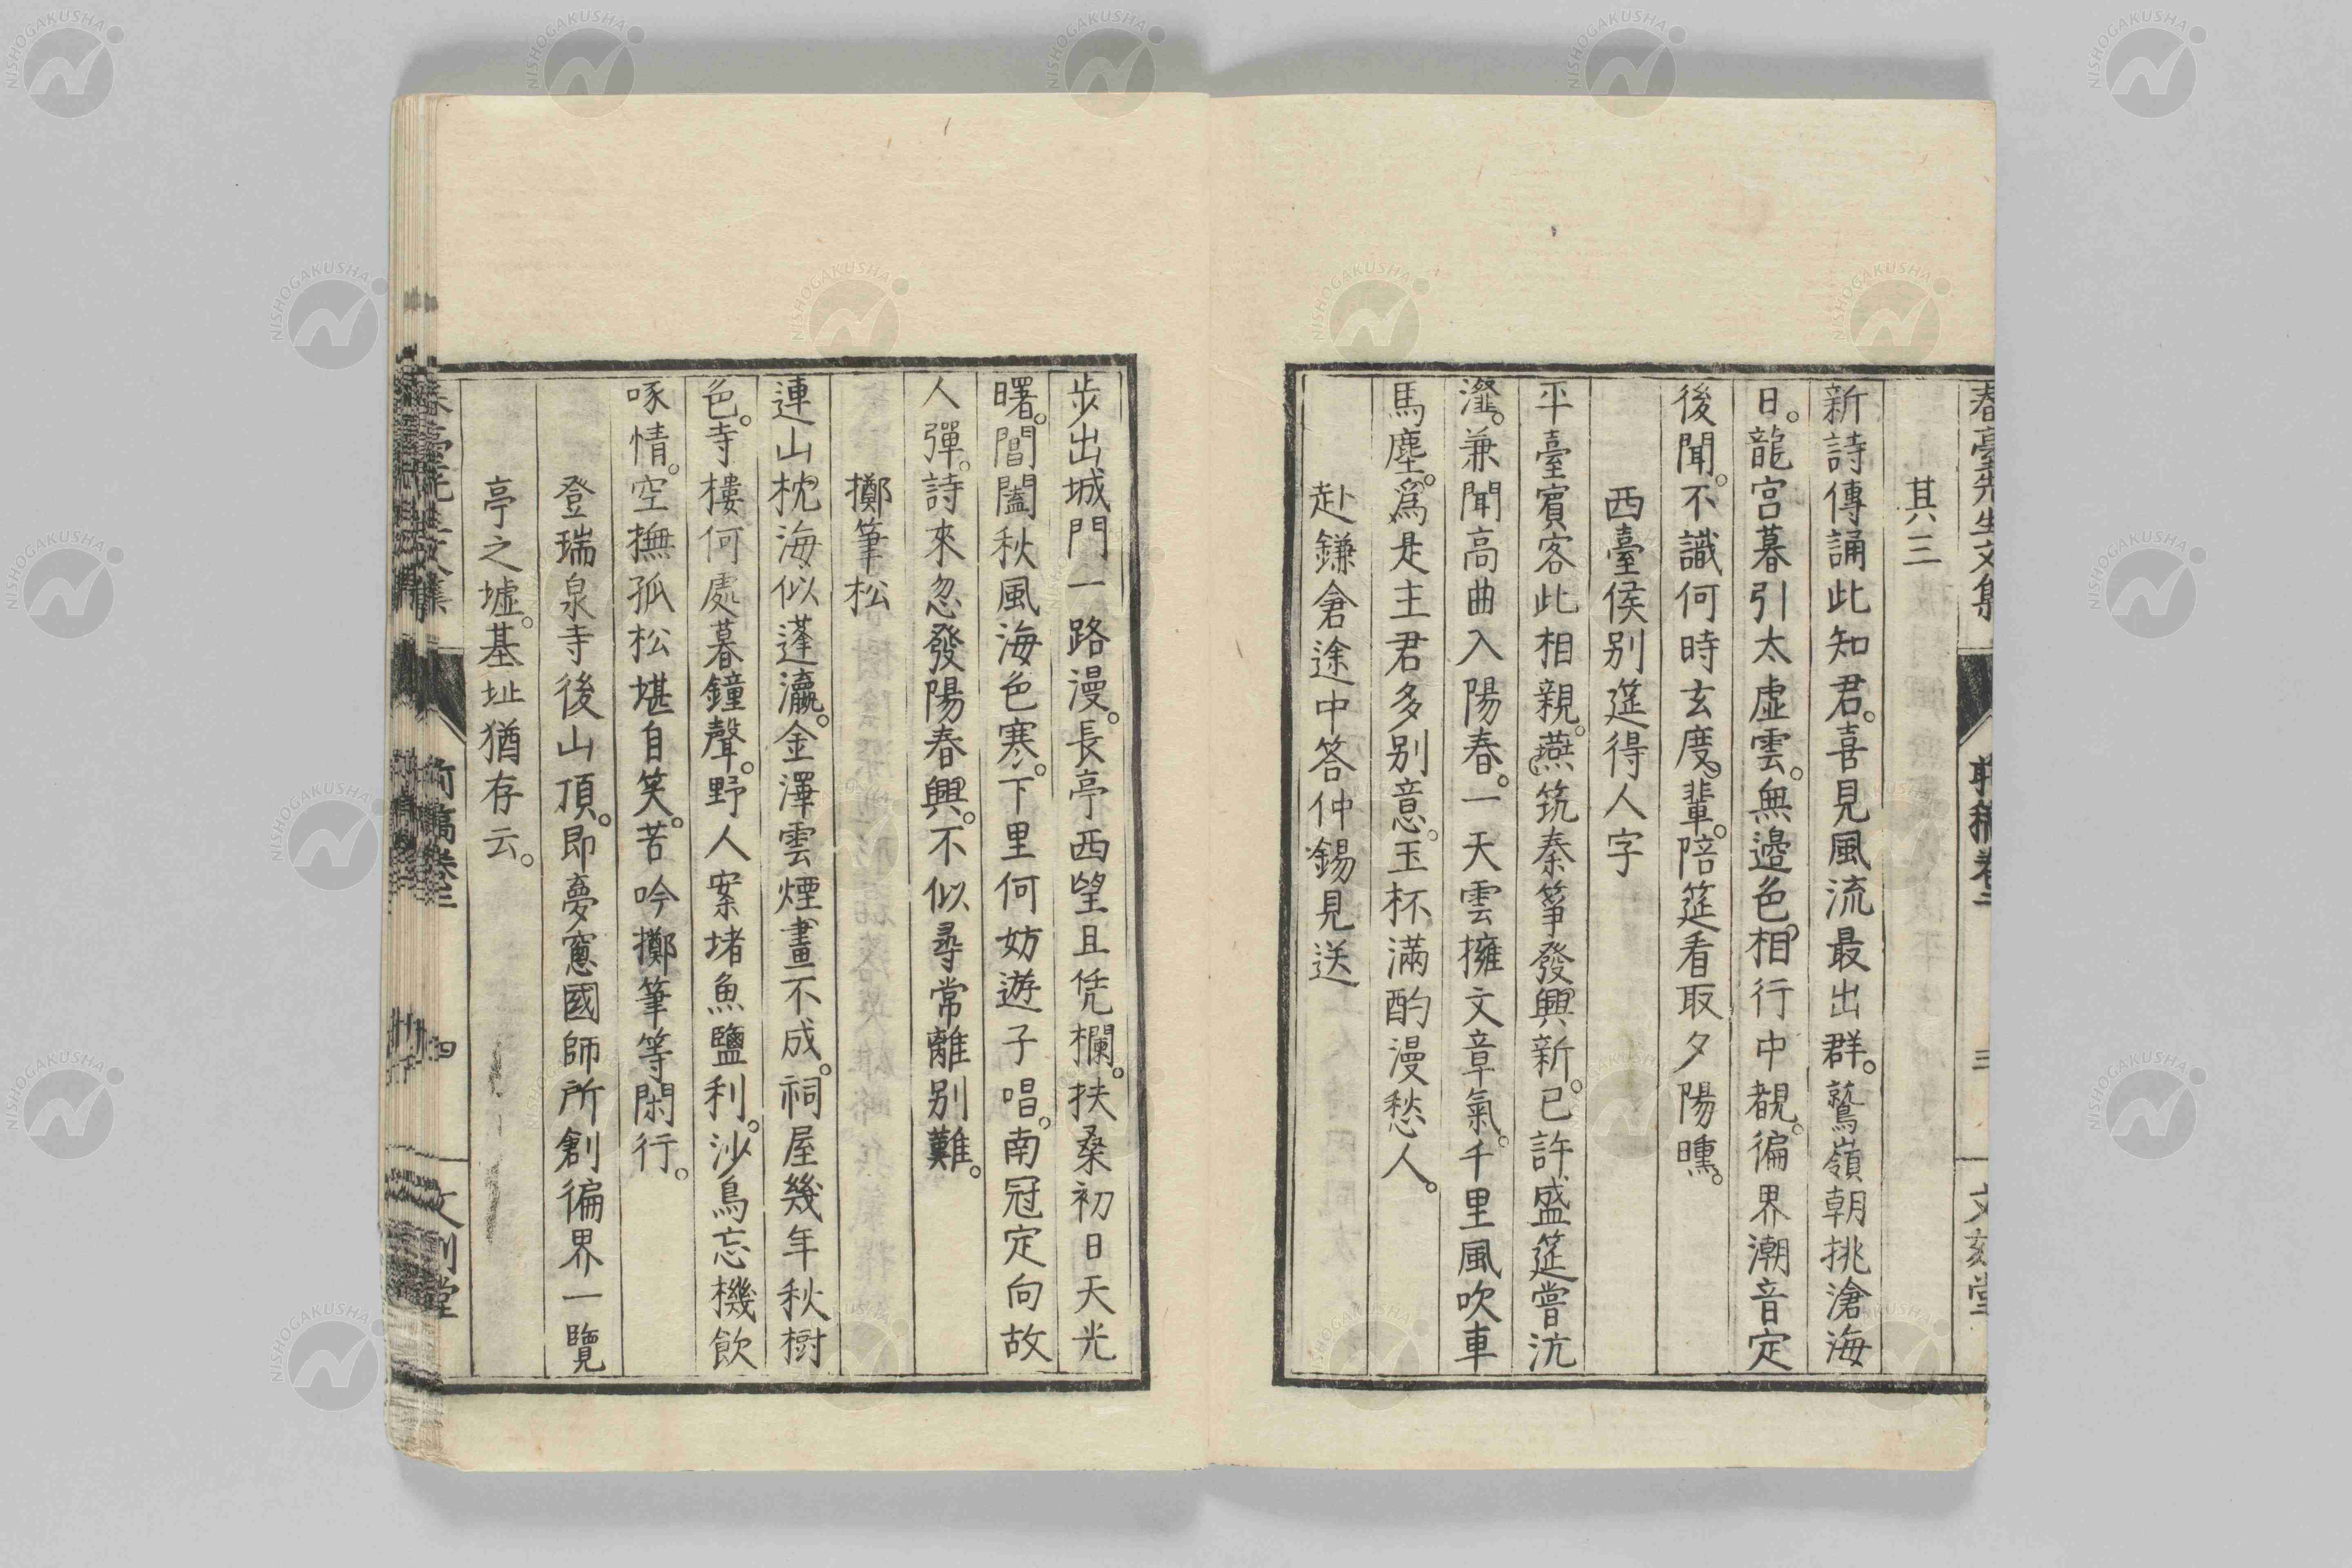 其三
新詩傳誦此知君。喜見風流最出群。鷲嶺朝挑滄海
日。龍宮暮引太虛雲。無邊色相行中覩。徧界潮音定
後聞。不識何時玄度輩。陪筵看取夕陽曛。
西臺侯別筵得人字
平臺賓客此相親。燕筑秦箏發興新。已許盛筵嘗沆
瀣。兼聞高曲入陽春。一天雲擁文章氣。千里風吹車
馬塵。爲是主君多別意。玉杯滿酌漫愁人。
赴鎌倉途中答仲錫見送
步出城門一路漫。長亭西望且凭欄。扶桑初日天光
曙。閶闔秋風海色寒。下里何妨遊子唱。南冠定向故
人彈。詩來忽發陽春興。不似尋常離別難。
擲筆松
連山枕海似蓬瀛。金澤雲煙畫不成。祠屋幾年秋樹
色。寺樓何處暮鐘聲。野人案堵魚鹽利。沙鳥忘機飲
啄情。空撫孤松堪自笑。苦吟擲筆等閑行。
登瑞泉寺後山頂。即夢窻國師所創徧界一覽
亭之墟。基址猶存云。
四
NISHOGAKUSHA